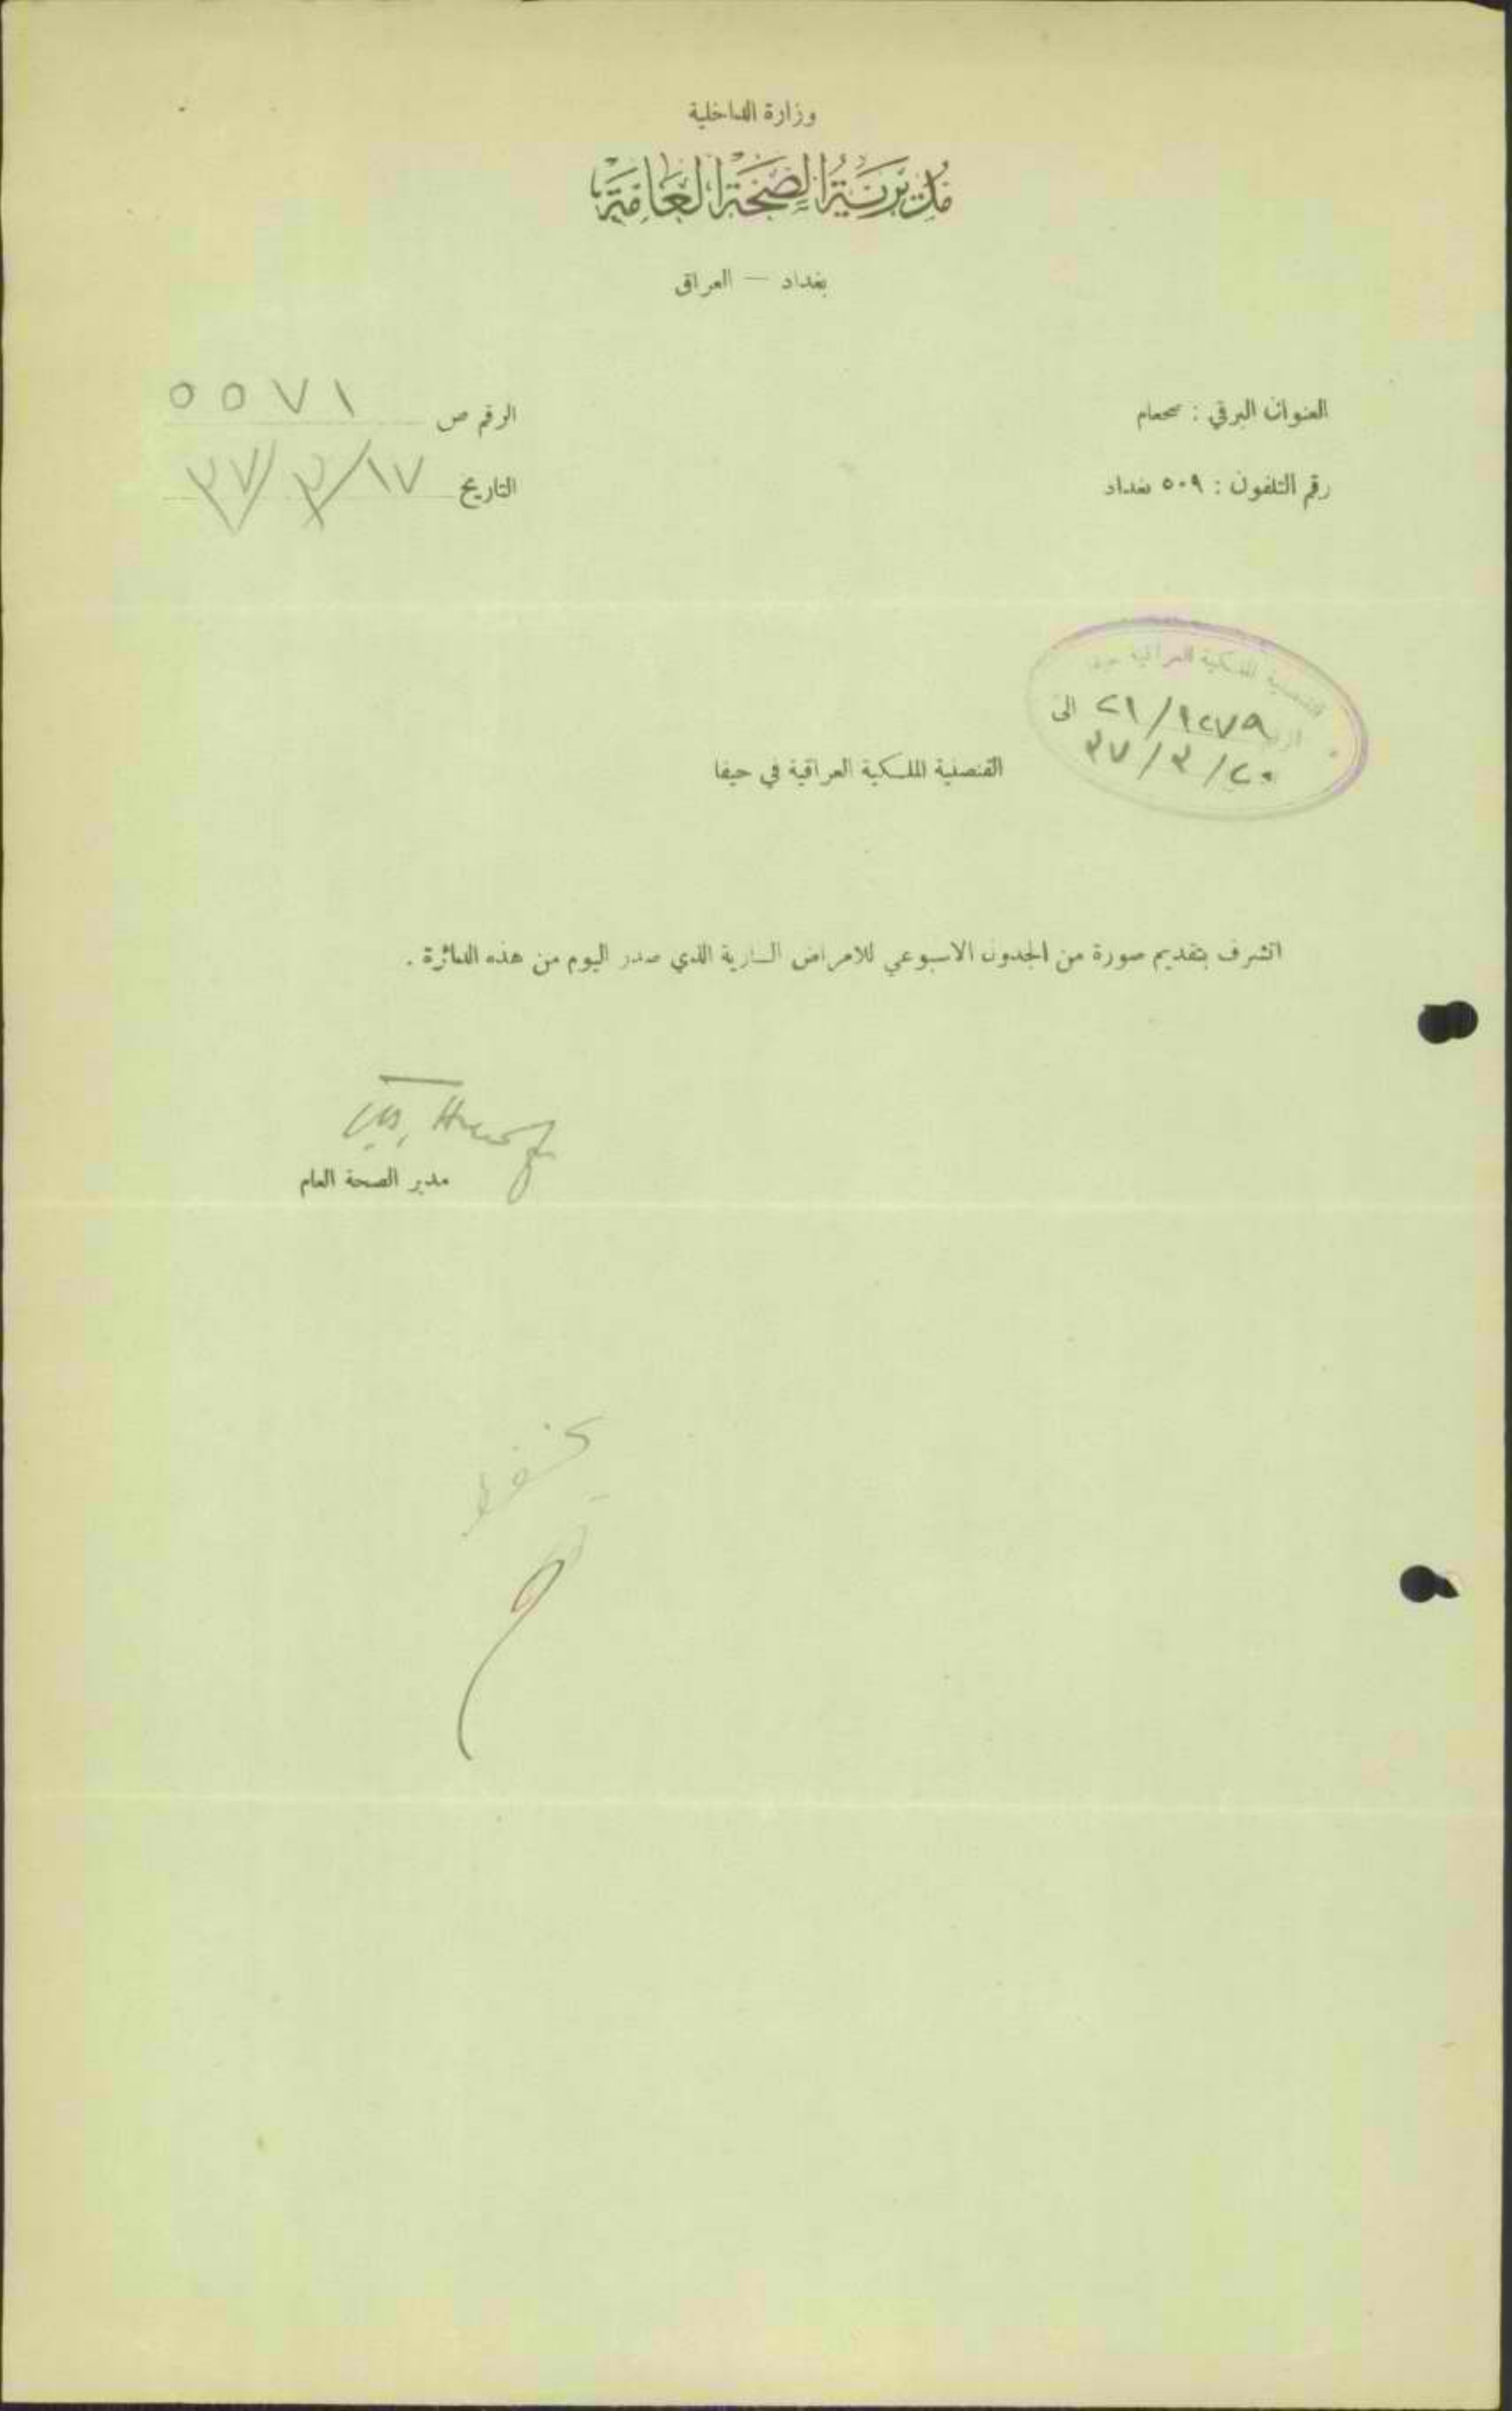 وزارة الداخلية
مديرية الصحة العامة
بغداد — العراق
العنوان البرقي : صحعام
الرقم ص ٥٥٧١
رقم التلفون : ٥٠٩ بغداد
التاريخ ١٧/٣/٣٧
القنصلية الملكية العراقية حيفا
١٢٧٩/٢١ الى
٢٠/٣/٣٧
القنصلية الملكية العراقية في حيفا
اتشرف بتقديم صورة من الجدول الاسبوعي للامراض السارية الذي صدر اليوم من هذه الدائرة .
مدير الصحة العام
يحفظ